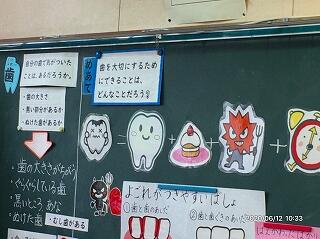 歯
自分の歯で気がついた
ことは、あるだろうか。
・歯の大きさ
・黒い部分があるか
・ぬけた歯があるか
めあて
歯を大切にするため
にできることは、
どんなことだろう。
歯の大きさがちがう
ぐらぐらしている歯
黒いところ あな
ぬけた歯
・むし歯がある
よごれがつきやすいばしょ
①歯と歯のあいだ
②歯と歯ぐきのあいだ
2020/06/12 10:33